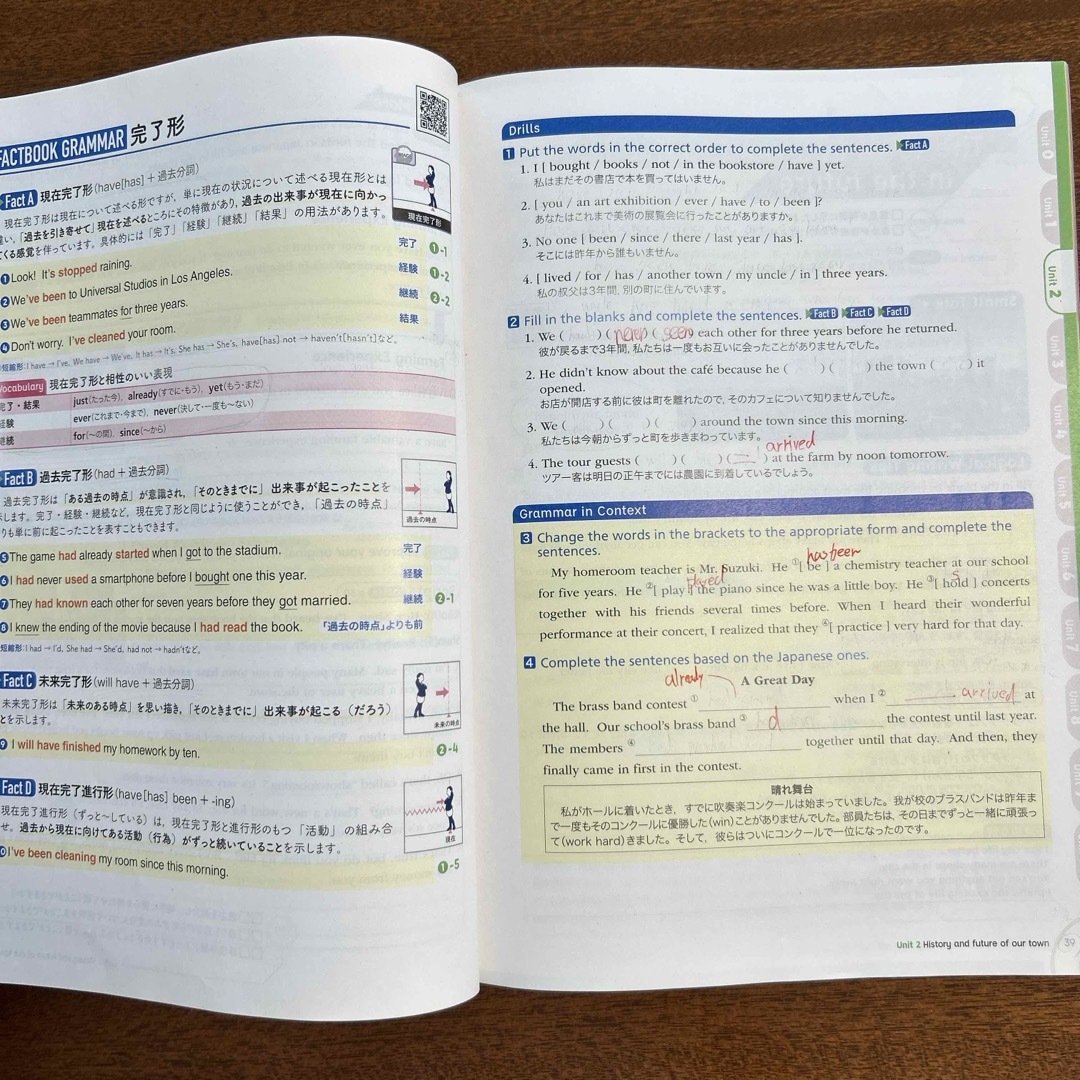 FACTBOOK GRAMMAR 完了形
Fact A 現在完了形(have[has] + 過去分詞)
現在完了形は現在について述べる形ですが, 単に現在の状況について述べる現在形とは
違い, 「過去を引き寄せて」現在を述べるところにその特徴があり, 過去の出来事が現在に向かっ
てくる感覚を伴っています。具体的には「完了」「経験」「継続」「結果」の用法があります。
現在完了形
❶Look! It's stopped raining. 完了 ❶-1
❷We've been to Universal Studios in Los Angeles. 経験 ❶-2
❸We've been teammates for three years. 継続 ❷-2
❹Don't worry. I've cleaned your room. 結果
短縮形:I have → I've, We have → We've, It has → It's, She has → She's, have[has] not → haven't[hasn't]など。
Vocabulary 現在完了形と相性のいい表現
完了・結果 just(たった今), already(すでに・もう), yet(もう・まだ)
経験 ever(これまで・今まで), never(決して・一度も〜ない)
継続 for(〜の間), since(〜から)
Fact B 過去完了形(had + 過去分詞)
過去完了形は「ある過去の時点」が意識され, 「そのときまでに」出来事が起こったことを
示します。完了・経験・継続など, 現在完了形と同じように使うことができ, 「過去の時点」
よりも単に前に起こったことを表すこともできます。
過去の時点
❺The game had already started when I got to the stadium. 完了
❻I had never used a smartphone before I bought one this year. 経験
❼They had known each other for seven years before they got married. 継続 ❷-1
❽I knew the ending of the movie because I had read the book. 「過去の時点」よりも前
短縮形:I had → I'd, She had → She'd, had not → hadn'tなど。
Fact C 未来完了形(will have + 過去分詞)
未来完了形は「未来のある時点」を思い描き, 「そのときまでに」出来事が起こる(だろう)
ことを示します。
未来の時点
❾I will have finished my homework by ten. ❷-4
Fact D 現在完了進行形(have[has] been + -ing)
現在完了進行形(ずっと〜している)は, 現在完了形と進行形のもつ「活動」の組み合
せ。過去から現在に向けてある活動(行為)がずっと続いていることを示します。
現在
I've been cleaning my room since this morning. ❶-5
Drills
1 Put the words in the correct order to complete the sentences. Fact A
1. I [ bought / books / not / in the bookstore / have ] yet.
私はまだその書店で本を買ってはいません。
2. [ you / an art exhibition / ever / have / to / been ]?
あなたはこれまで美術の展覧会に行ったことがありますか。
3. No one [ been / since / there / last year / has ].
そこには昨年から誰もいません。
4. [ lived / for / has / another town / my uncle / in ] three years.
私の叔父は3年間, 別の町に住んでいます。
2 Fill in the blanks and complete the sentences. Fact B Fact C Fact D
1. We ( )( )( seen each other for three years before he returned.
彼が戻るまで3年間, 私たちは一度もお互いに会ったことがありませんでした。
2. He didn't know about the café because he ( )( ) the town ( ) it
opened.
お店が開店する前に彼は町を離れたので, そのカフェについて知りませんでした。
3. We ( )( )( ) around the town since this morning.
私たちは今朝からずっと町を歩きまわっています。
arrived
4. The tour guests ( )( )( ) at the farm by noon tomorrow.
ツアー客は明日の正午までには農園に到着しているでしょう。
Grammar in Context
3 Change the words in the brackets to the appropriate form and complete the
sentences.
has been
My homeroom teacher is Mr. Suzuki. He ①[ be ] a chemistry teacher at our school
played
for five years. He ②[ play ] the piano since he was a little boy. He ③[ hold ] concerts
together with his friends several times before. When I heard their wonderful
performance at their concert, I realized that they ④[ practice ] very hard for that day.
4 Complete the sentences based on the Japanese ones.
already
A Great Day
The brass band contest ① when I ② arrived at
the hall. Our school's brass band ③ d the contest until last year.
The members ④ together until that day. And then, they
finally came in first in the contest.
晴れ舞台
私がホールに着いたとき, すでに吹奏楽コンクールは始まっていました。我が校のブラスバンドは昨年ま
で一度もそのコンクールに優勝した(win)ことがありませんでした。部員たちは, その日までずっと一緒に頑張っ
て(work hard)きました。そして, 彼らはついにコンクールで一位になったのです。
Unit 2 History and future of our town 39
Unit 0
Unit 1
Unit 2